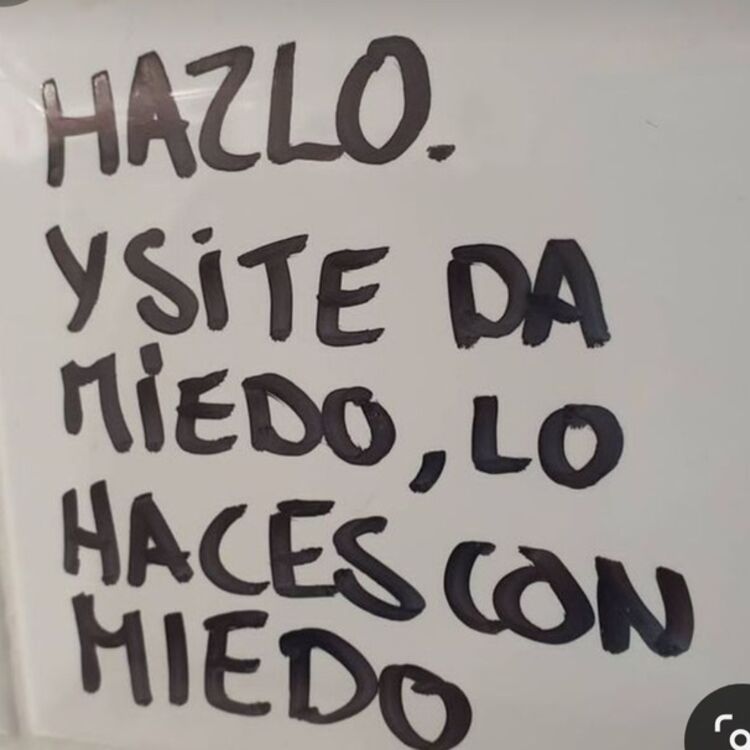 HAZLO.
Y SI TE DA
MIEDO, LO
HACES CON
MIEDO